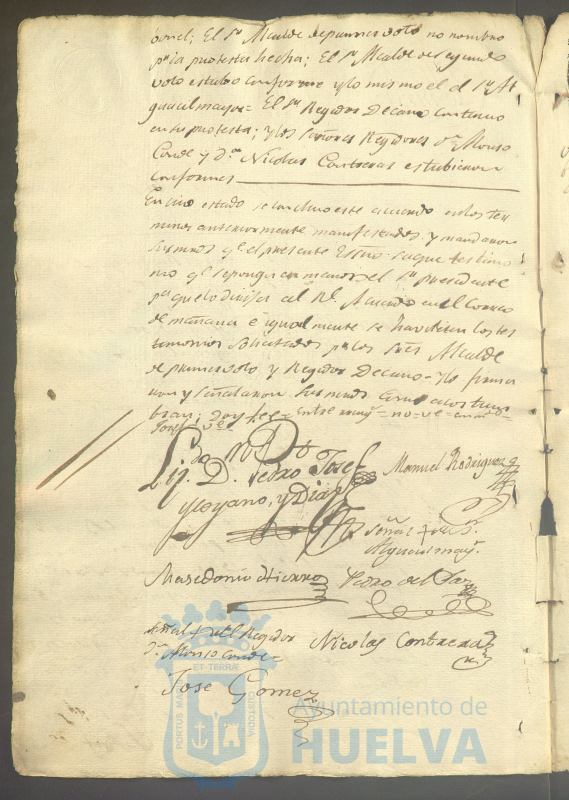 bonel; El Sr. Alcalde de primer voto no nombro
pr. la protesta hecha; El Sr. Alcalde de segundo
voto estubo conforme y lo mismo el d Sr. Al
guacil mayor= El Sr. Regidor Decano continuo
en su protesta; y los Señores Regidores Dn. Alonso
Conde y Dn. Nicolas Contreras estubieron
conformes
En cuio estado se concluio este acuerdo en los ter
minos anteriormente manifestados, y mandaron
Sus mrds qe. el presente Essno. saque testimo
nio qe. se ponga en manos del Sr. Presidente
pa. que lo dirija al Rl. Acuerdo en el Correo
de mañana e igualmente se
timonios solicitados pr. los Sres. Alcalde
de primer voto y Regidor Decano- y lo firma
ron y señalaron Sus mrds como acostum
bran; doy fee= Entre rreng.= no=ve=
Lizdo. Dn. Pedro Josef
y Loyano, y Diaz
Manuel Rodriguez
Señal + del Sr.
Alguacil mayr.
Masedonio Hierro
Pedro del
Señal + del Regidor
Dn. Alonso Conde=
Nicolas Contreras
Jose Gomez
PORTUS MARIS ET TERRÆ CUSTODIA
Ayuntamiento de
HUELVA